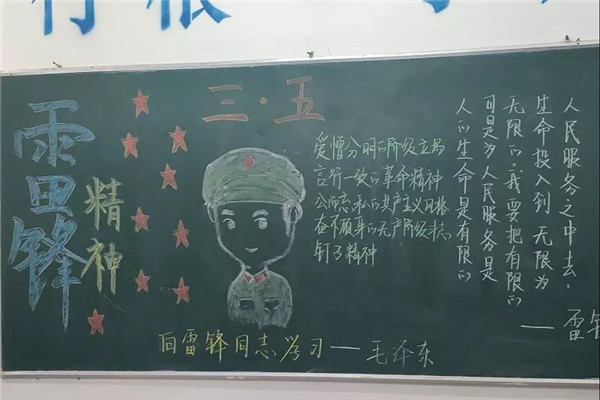 雷锋
精神
三·五
爱憎分明的阶级立场
言行一致的革命精神
公而忘私的共产主义风格
奋不顾身的无产阶级斗志
钉子精神
人的生命是有限的
可是为人民服务是
无限的,我要把有限的
生命投入到无限为
人民服务之中去。
——雷锋
向雷锋同志学习——毛泽东